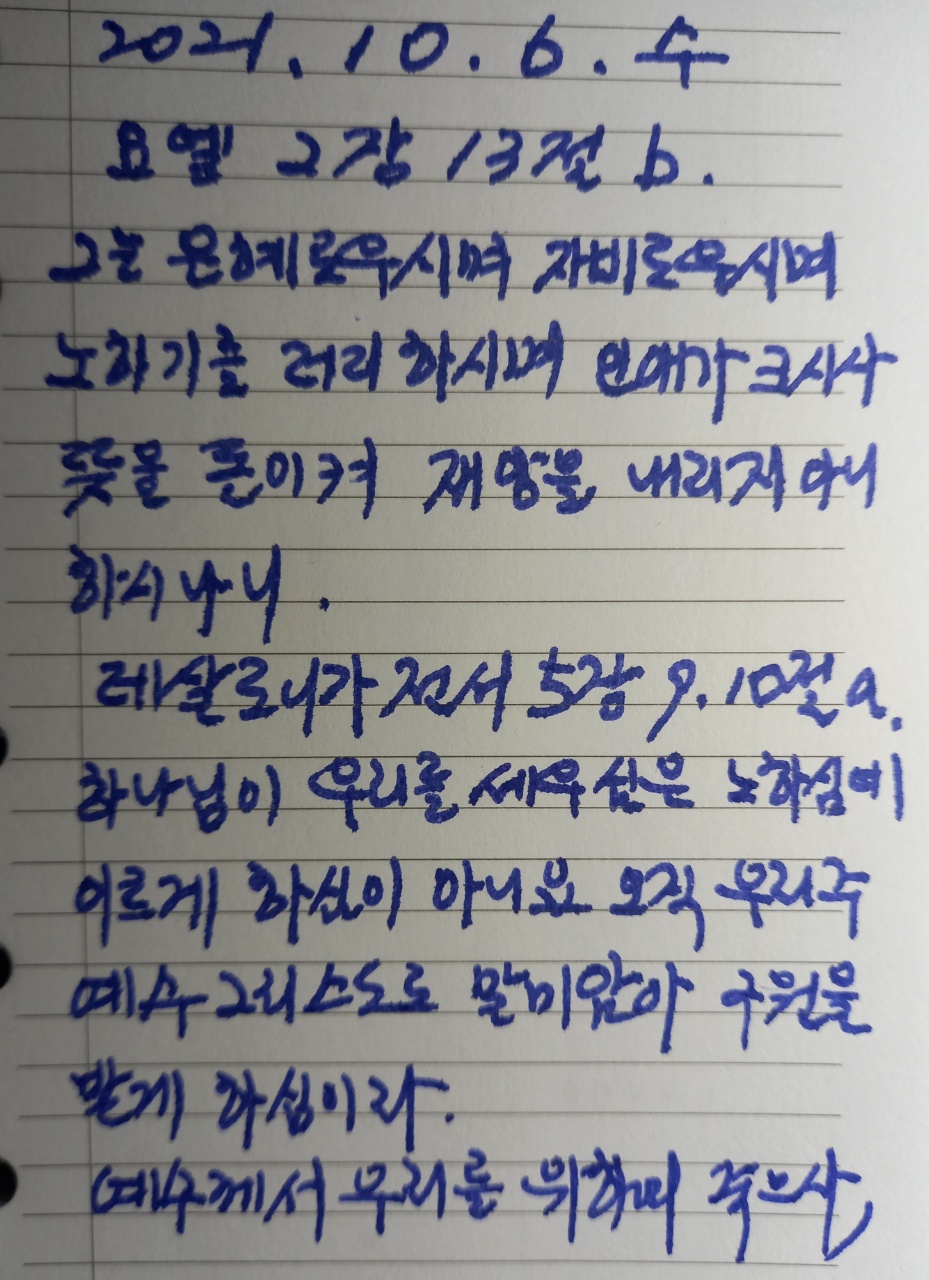 2021. 10. 6. 수
요엘 2장 13절 b.
그는 은혜로우시며 자비로우시며
노하기를 더디 하시며 인애가 크시사
뜻을 돌이켜 재앙을 내리지 아니
하시나니.
데살로니가 전서 5장 9. 10절 a.
하나님이 우리를 세우심은 노하심에
이르게 하심이 아니요 오직 우리 주
예수 그리스도로 말미암아 구원을
받게 하심이라.
예수께서 우리를 위하여 죽으사,